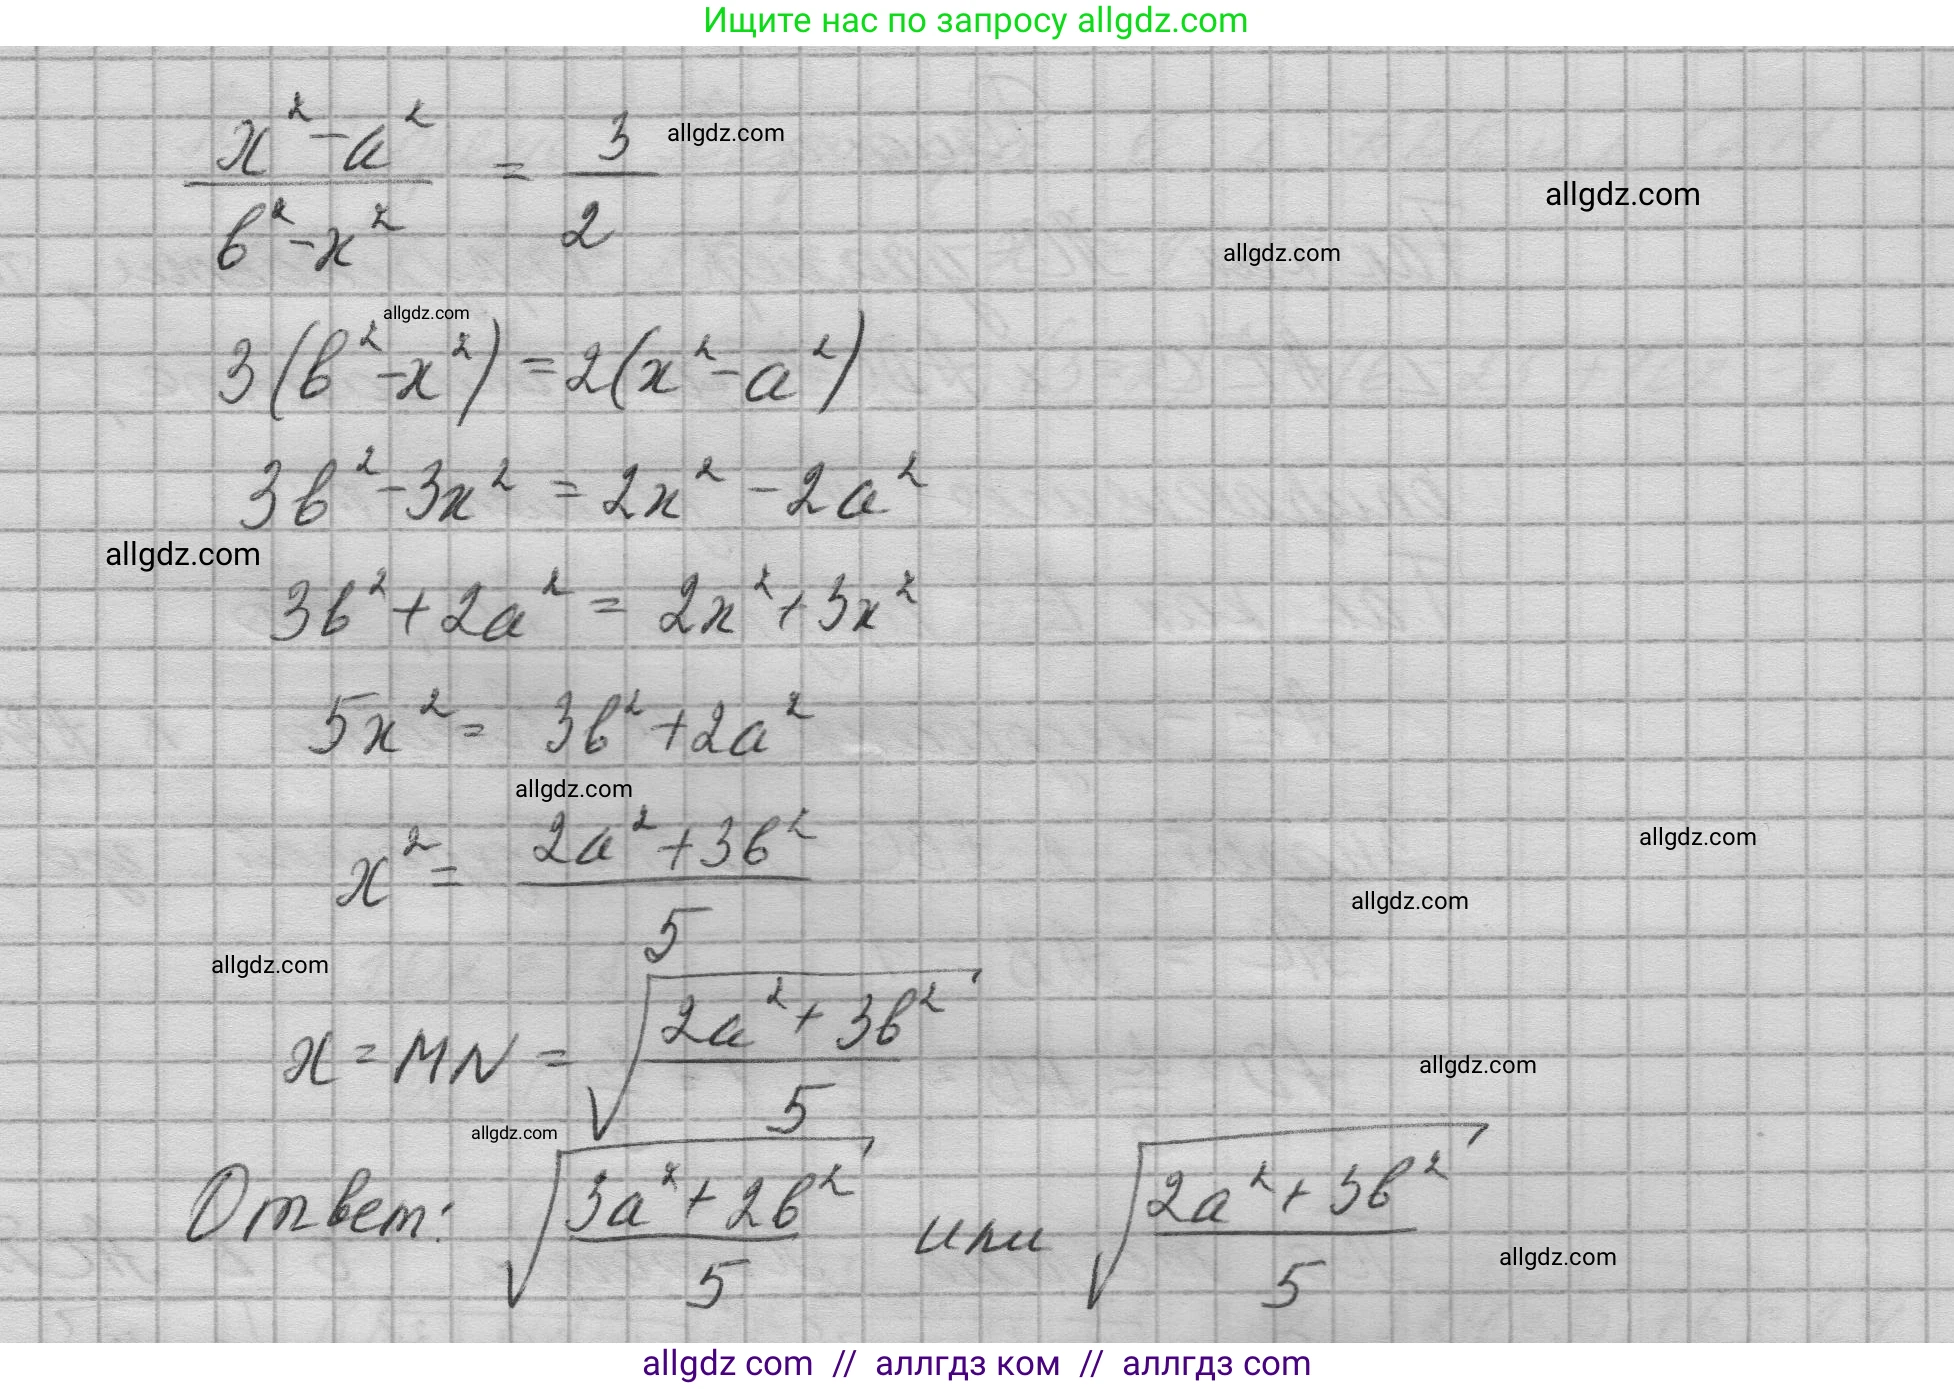 Ищите нас по запросу allgdz.com
x² - a² / b² - x² = 3 / 2
allgdz.com
allgdz.com
allgdz.com
allgdz.com
3(b² - x²) = 2(x² - a²)
3b² - 3x² = 2x² - 2a²
allgdz.com
3b² + 2a² = 2x² + 3x²
5x² = 3b² + 2a²
allgdz.com
x² = 2a² + 3b² / 5
allgdz.com
allgdz.com
allgdz.com
x = MN = √(2a² + 3b² / 5)
allgdz.com
allgdz.com
Ответ: √(3a² + 2b² / 5) или √(2a² + 3b² / 5)
allgdz.com
allgdz com // аллгдз ком // аллгдз com